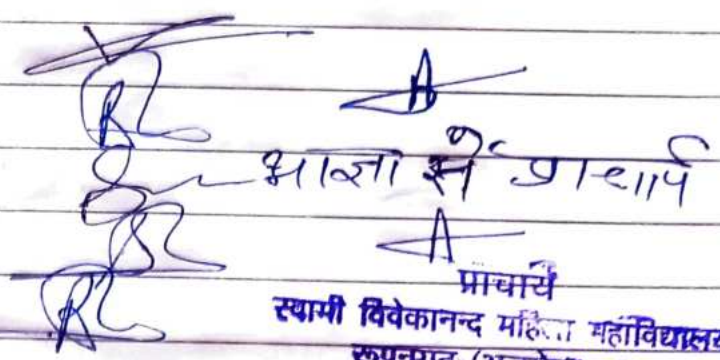 आज्ञा से प्राचार्य
प्राचार्य
स्वामी विवेकानन्द महिला महाविद्यालय
रूपनगढ़